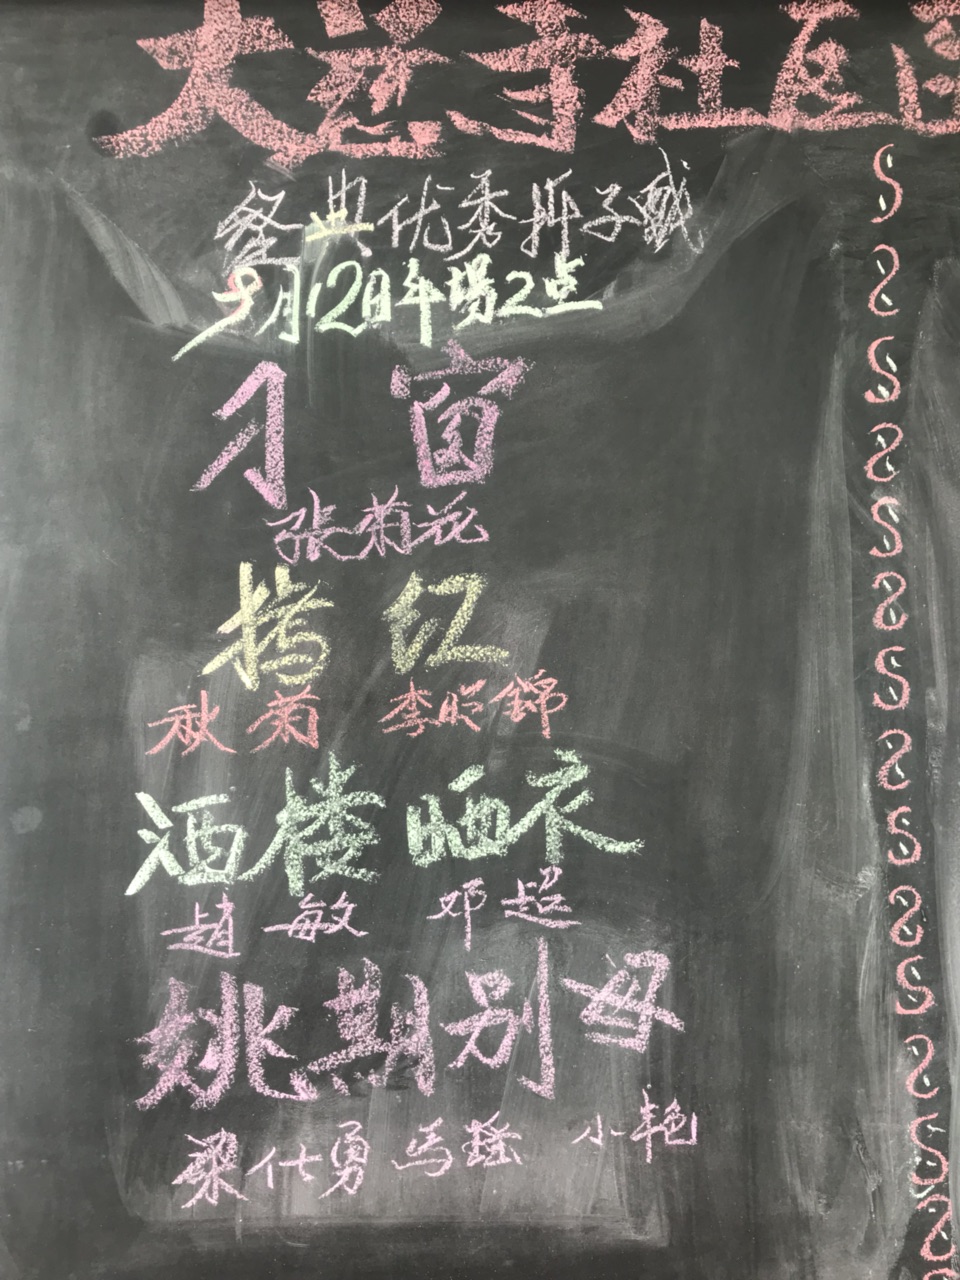 大慈寺社区
经典优秀折子戏
5月12日午場2点
刁 窗
张菊花
挡 红
秋 菊 李昭錦
酒楼晒衣
趙 敏 邓超
姚期别母
梁仕勇 馬瑶 小艳